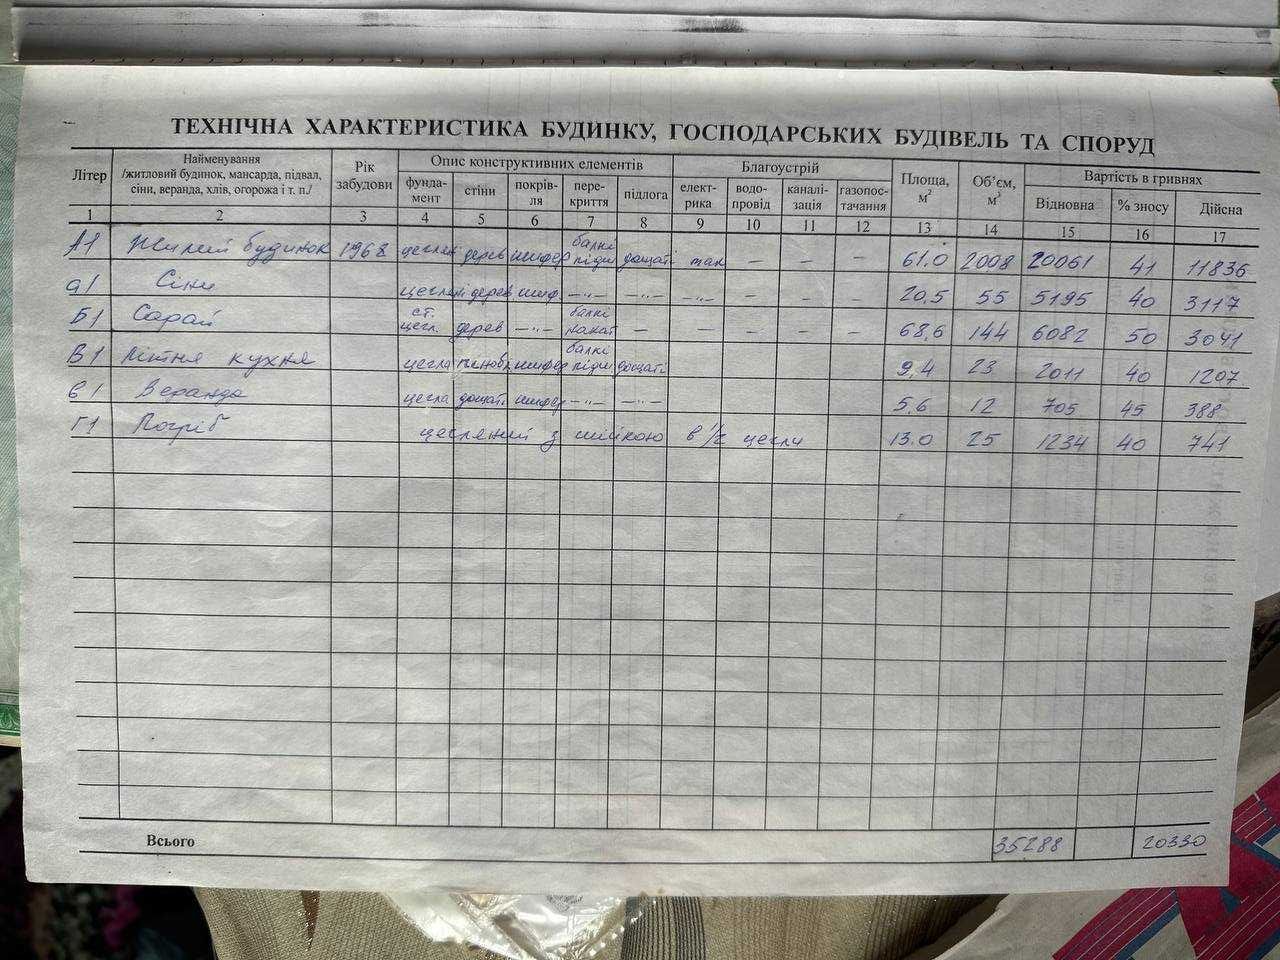 ТЕХНІЧНА ХАРАКТЕРИСТИКА БУДИНКУ, ГОСПОДАРСЬКИХ БУДІВЕЛЬ ТА СПОРУД
Літер Найменування /житловий будинок, мансарда, підвал, сіни, веранда, хлів, огорожа і т. п./ Рік забудови Опис конструктивних елементів Благоустрій Площа, м² Об’єм, м³ Вартість в гривнях
фунда-мент стіни покрів-ля пере-криття підлога елект-рика водо-провід каналі-зація газопос-тачання Відновна % зносу Дійсна
1 2 3 4 5 6 7 8 9 10 11 12 13 14 15 16 17
А1 Жилий будинок 1968 цеглян дерев шифер балкі підши дощаті так – – – 61.0 2008 20061 41 11836
а1 Сіни цеглян дерев шиф. –"– –"– –"– – – – 20,5 55 5195 40 3117
Б1 Сарай ст. цегл. дерев –"– балкі накат – – – – – 68,6 144 6082 50 3041
В1 Літня кухня цегла шифер балкі підши дощаті 9,4 23 2011 40 1207
в1 Веранда цегла дощаті шифер –"– –"– 5,6 12 705 45 388
Г1 Погріб цегляний з шийкою в 1/2 цегли 13.0 25 1234 40 741
Всього 35288 20330